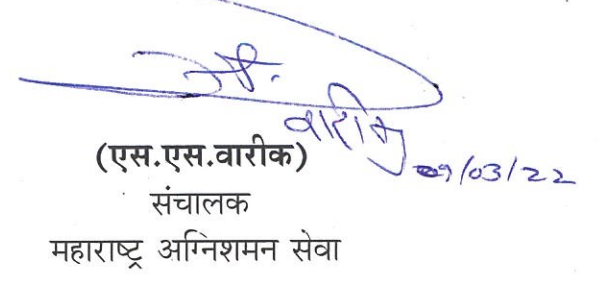 वारीक
09/03/22
(एस.एस.वारीक)
संचालक
महाराष्ट्र अग्निशमन सेवा